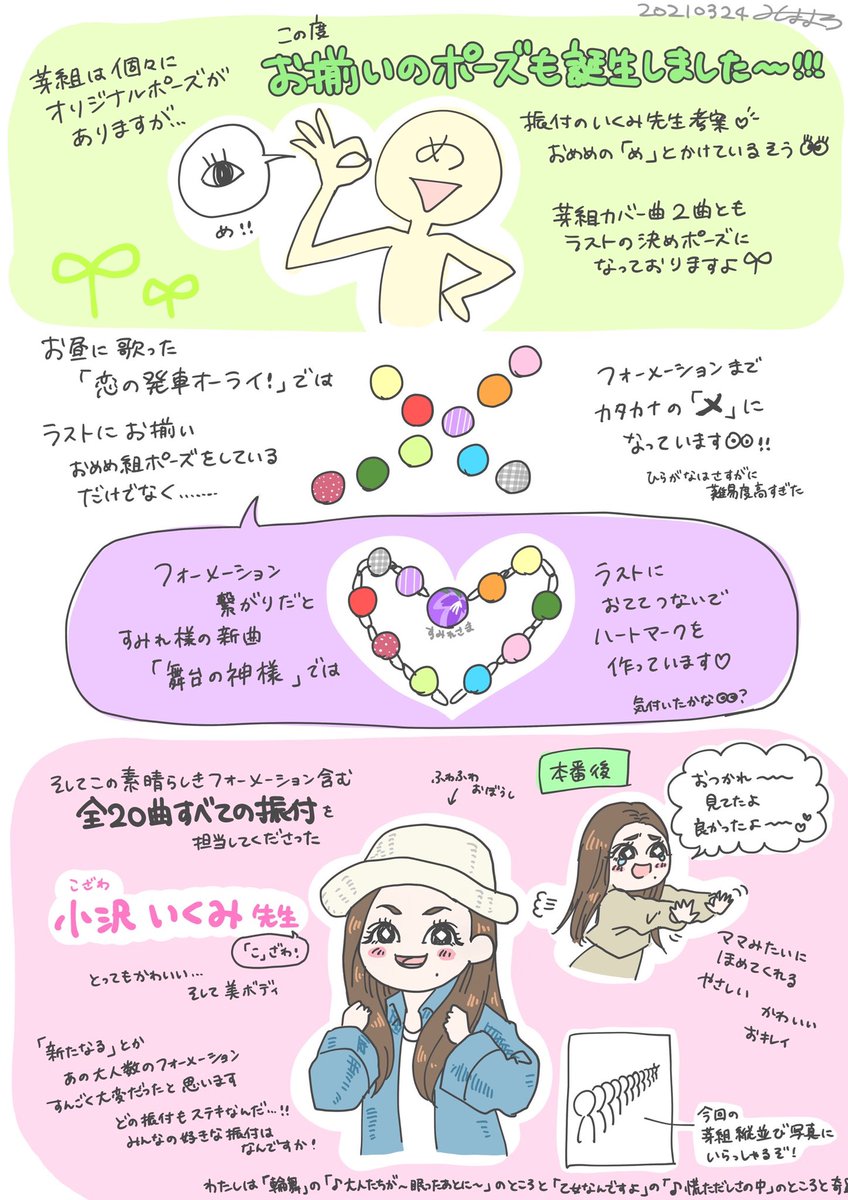 20210324
芽組は個々に
オリジナルポーズが
ありますが…
この度
お揃いのポーズも誕生しました〜!!!
め
め!!
振付のいくみ先生考案♡
おめめの「め」とかけているそう
芽組カバー曲2曲とも
ラストの決めポーズに
なっておりますよ
お昼に歌った
「恋の発車オーライ!」では
ラストにお揃い
おめめ組ポーズをしている
だけでなく……
フォーメーションまで
カタカナの「メ」に
なっています!!
ひらがなはさすがに
難易度高すぎた
フォーメーション
繋がりだと
すみれ様の新曲
「舞台の神様」では
すみれさま
ラストに
おててつないで
ハートマークを
作っています♡
気付いたかな?
そしてこの素晴らしきフォーメーション含む
全20曲すべての振付を
担当してくださった
こざわ
小沢いくみ先生
「こ」ざわ!
とってもかわいい…
そして美ボディ
「新たなる」とか
あの大人数のフォーメーション
すんごく大変だったと思います
どの振付もステキなんだ…!!
みんなの好きな振付は
なんですか!
ふわふわ
おぼうし
本番後
おつかれ〜〜
見てたよ
良かったよ〜〜
ママみたいに
ほめてくれる
やさしい
かわいい
おキレイ
今回の
芽組縦並び写真に
いらっしゃるぞ!
わたしは「輪舞」の「♪大人たちが〜眠ったあとに〜」のところと「乙女なんですよ」の「♪慌ただしさの中」のところと